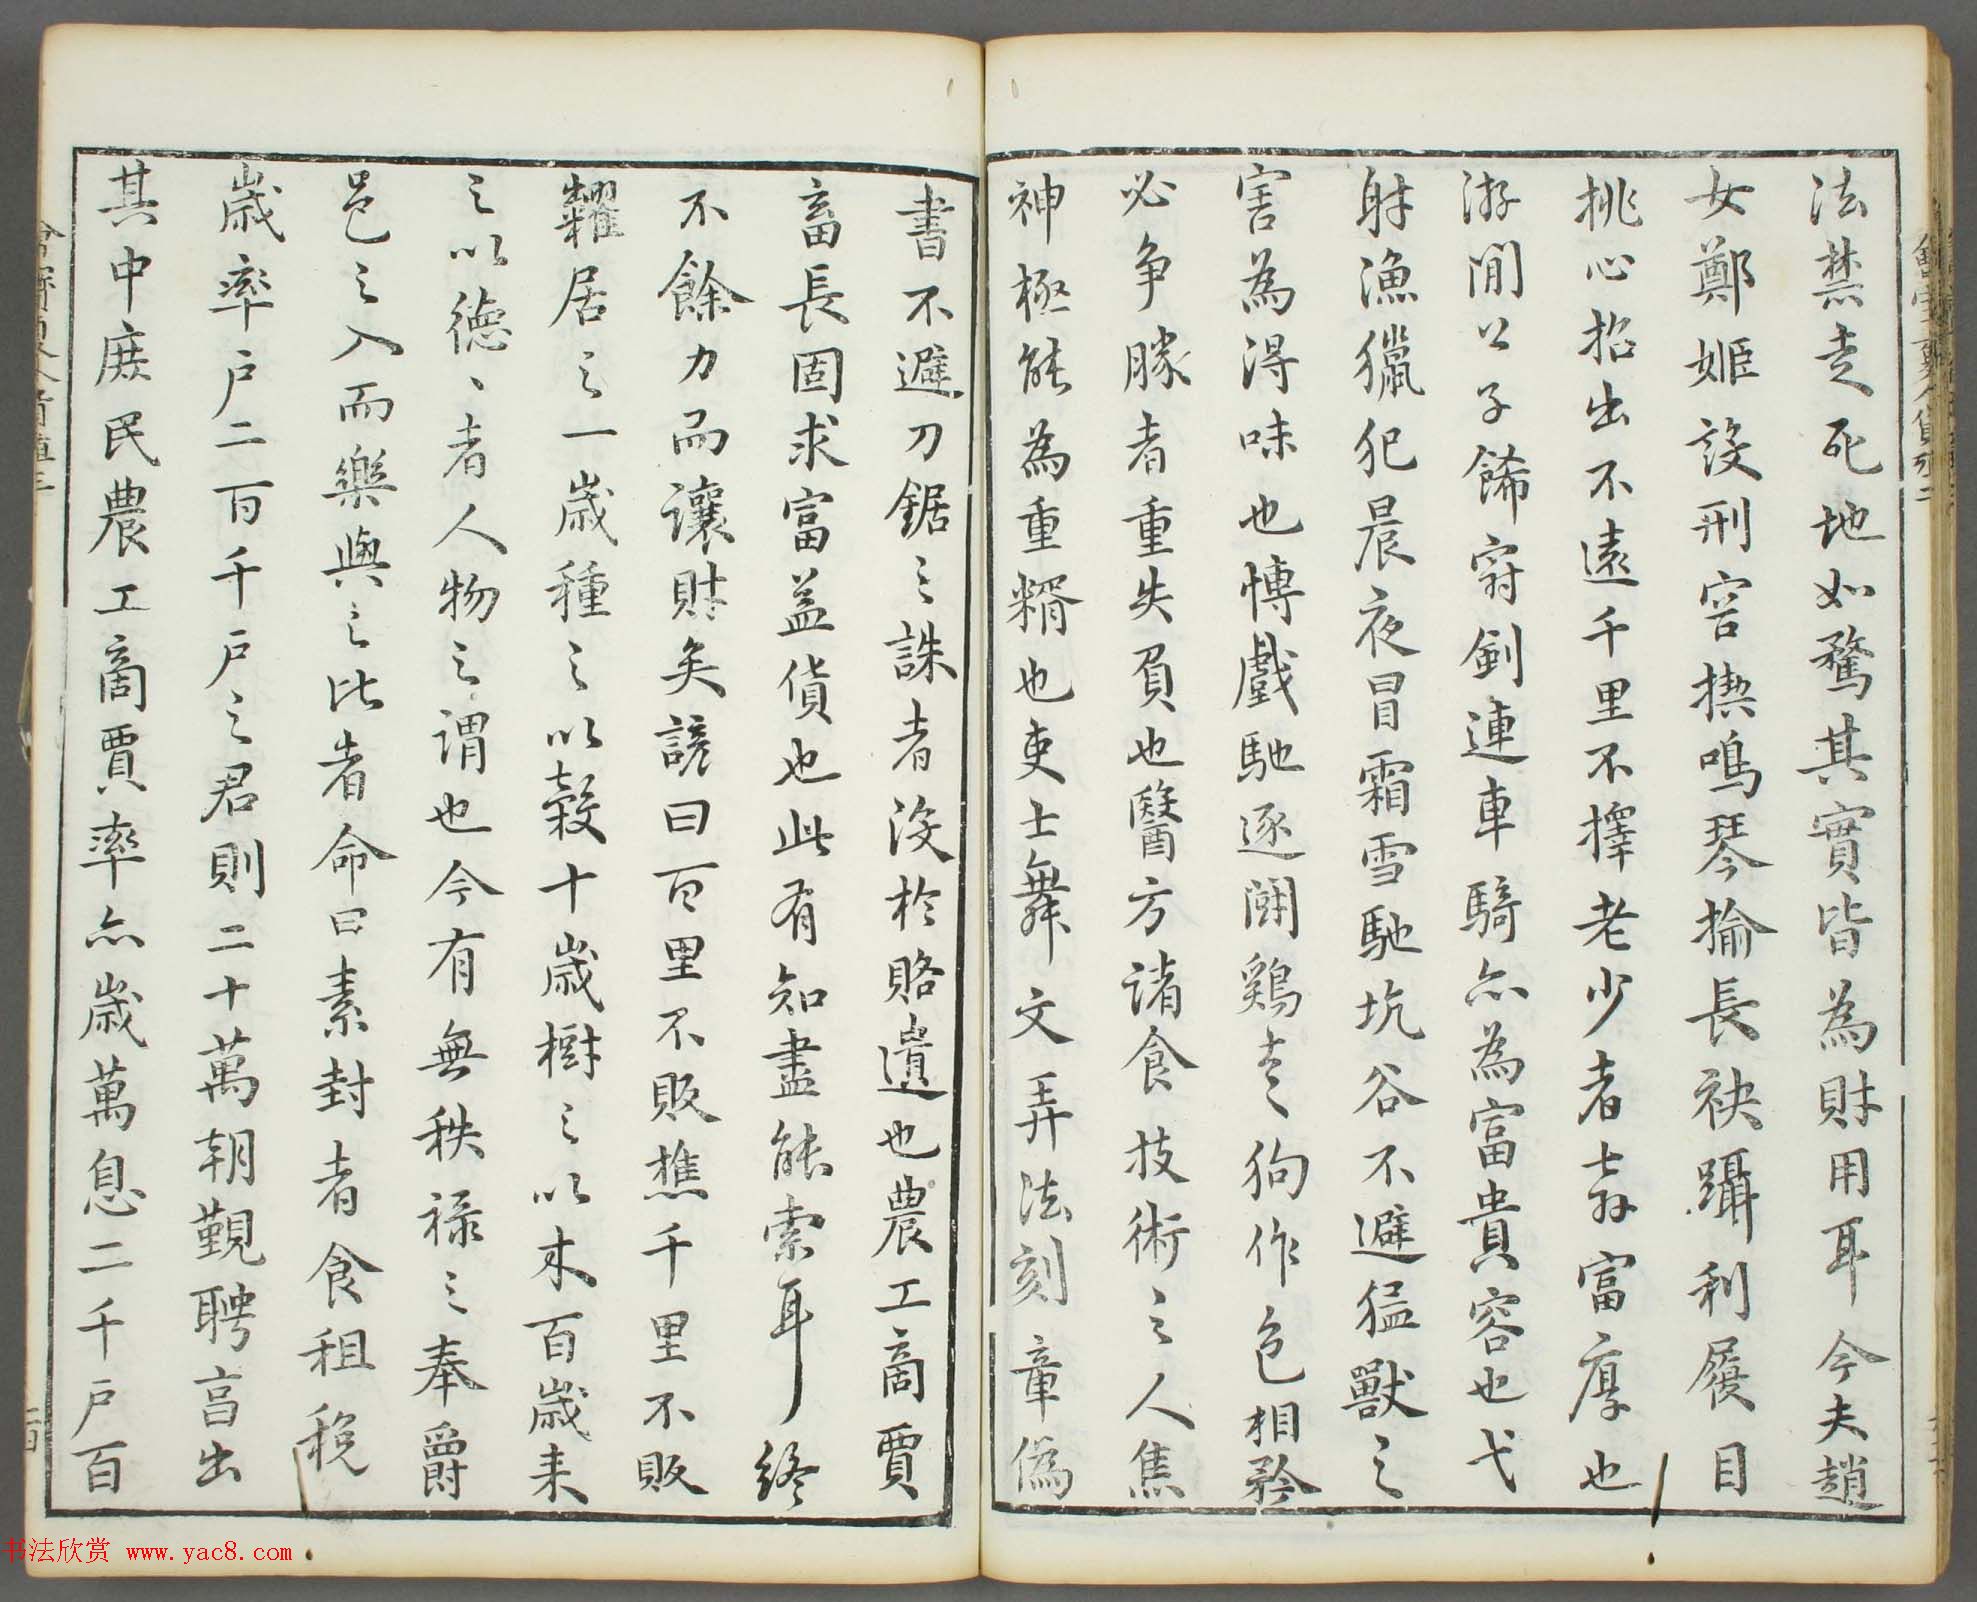 法禁走死地如騖其實皆為財用耳今夫趙
女鄭姬設刑容揳鳴琴揄長袂躡利屨目
挑心招出不遠千里不擇老少者奔富厚也
游閒公子餙冠劍連車騎亦為富貴容也弋
射漁獵犯晨夜冒霜雪馳坑谷不避猛獸之
害為得味也博戲馳逐鬬鷄走狗作色相矜
必爭勝者重失負也醫方諸食技術之人焦
神極能為重糈也吏士舞文弄法刻章偽
書不避刀鋸之誅者沒於賂遺也農工商賈
畜長固求富益貨也此有知盡能索耳終
不餘力而讓財矣諺曰百里不販樵千里不販
糴居之一歲種之以穀十歲樹之以木百歲来
之以德〻者人物之謂也今有無秩祿之奉爵
邑之入而樂與之比者命曰素封者食租稅
歲率戶二百千戶之君則二十萬朝覲聘享出
其中庶民農工商賈率亦歲萬息二千戶百
二四
书法欣赏 www.yac8.com